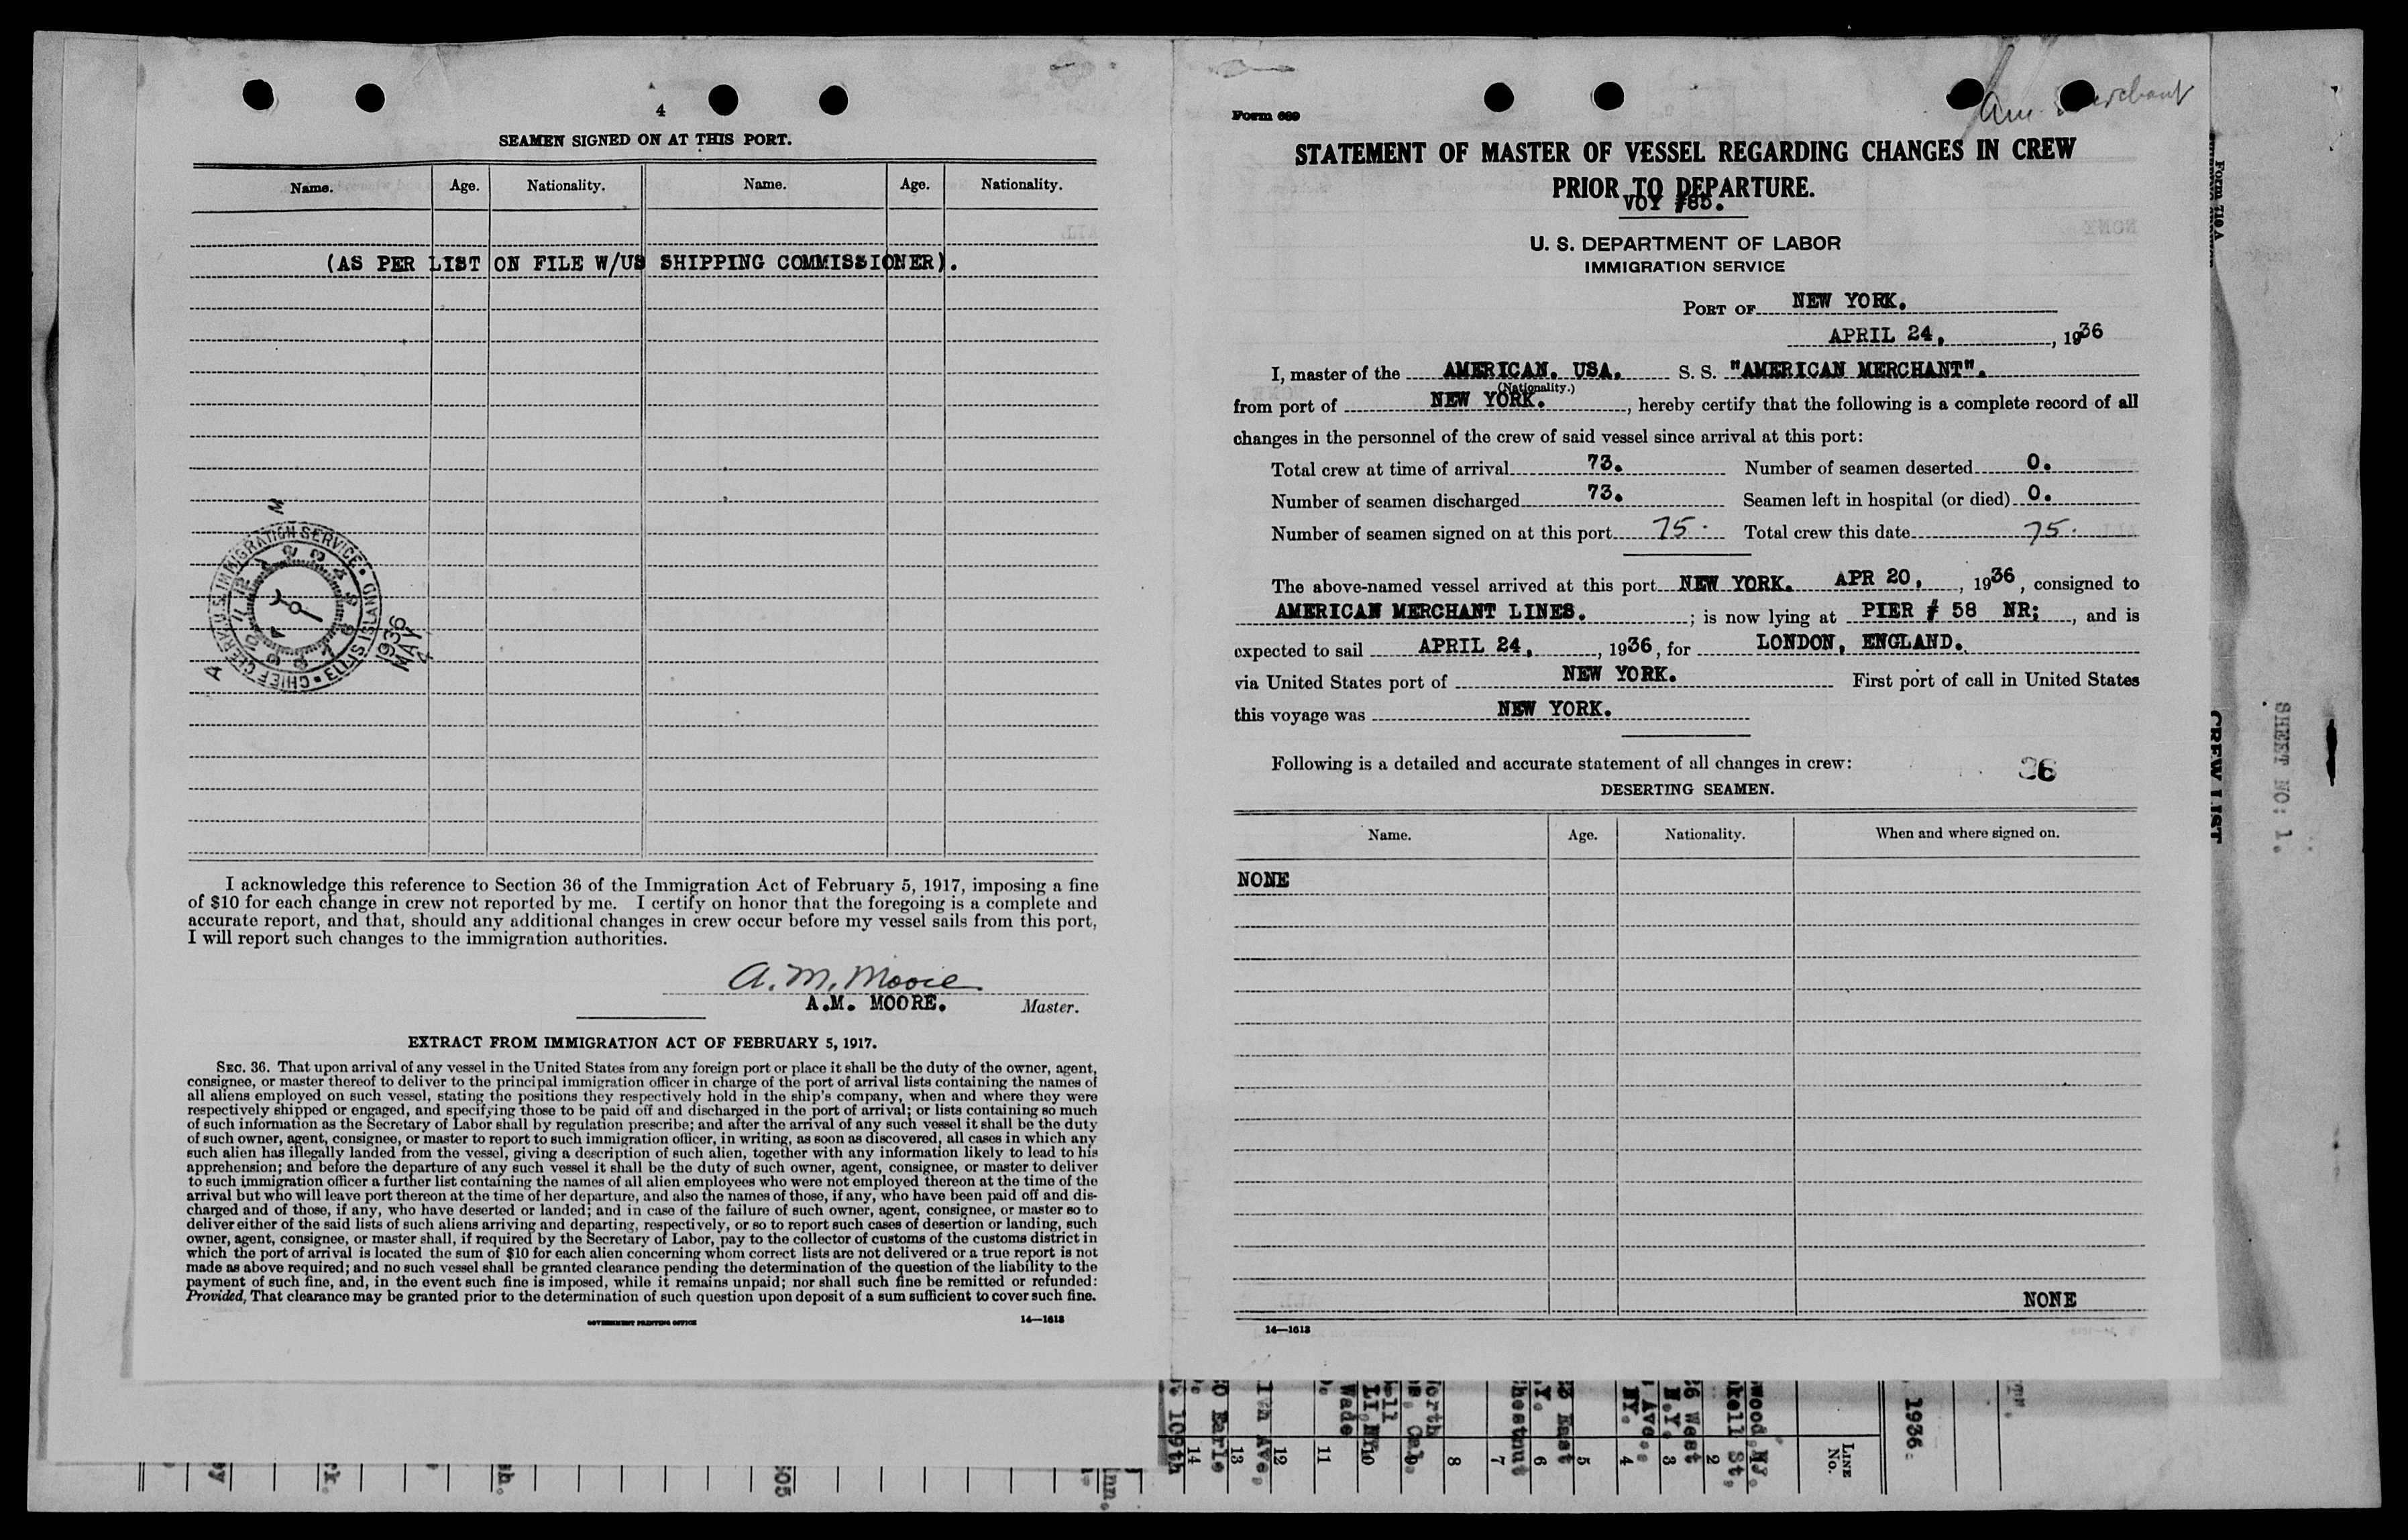 4
SEAMEN SIGNED ON AT THIS PORT.
Name. Age. Nationality. Name. Age. Nationality.
(AS PER LIST ON FILE W/US SHIPPING COMMISSIONER).
CHIEF CLERK U.S. IMMIGRATION SERVICE • ELLIS ISLAND •
1936
MAY
4
I acknowledge this reference to Section 36 of the Immigration Act of February 5, 1917, imposing a fine
of $10 for each change in crew not reported by me. I certify on honor that the foregoing is a complete and
accurate report, and that, should any additional changes in crew occur before my vessel sails from this port,
I will report such changes to the immigration authorities.
A. M. Moore
A.M. MOORE. Master.
EXTRACT FROM IMMIGRATION ACT OF FEBRUARY 5, 1917.
SEC. 36. That upon arrival of any vessel in the United States from any foreign port or place it shall be the duty of the owner, agent,
consignee, or master thereof to deliver to the principal immigration officer in charge of the port of arrival lists containing the names of
all aliens employed on such vessel, stating the positions they respectively hold in the ship's company, when and where they were
respectively shipped or engaged, and specifying those to be paid off and discharged in the port of arrival; or lists containing so much
of such information as the Secretary of Labor shall by regulation prescribe; and after the arrival of any such vessel it shall be the duty
of such owner, agent, consignee, or master to report to such immigration officer, in writing, as soon as discovered, all cases in which any
such alien has illegally landed from the vessel, giving a description of such alien, together with any information likely to lead to his
apprehension; and before the departure of any such vessel it shall be the duty of such owner, agent, consignee, or master to deliver
to such immigration officer a further list containing the names of all alien employees who were not employed thereon at the time of the
arrival but who will leave port thereon at the time of her departure, and also the names of those, if any, who have been paid off and dis-
charged and of those, if any, who have deserted or landed; and in case of the failure of such owner, agent, consignee, or master so to
deliver either of the said lists of such aliens arriving and departing, respectively, or so to report such cases of desertion or landing, such
owner, agent, consignee, or master shall, if required by the Secretary of Labor, pay to the collector of customs of the customs district in
which the port of arrival is located the sum of $10 for each alien concerning whom correct lists are not delivered or a true report is not
made as above required; and no such vessel shall be granted clearance pending the determination of the question of the liability to the
payment of such fine, and, in the event such fine is imposed, while it remains unpaid; nor shall such fine be remitted or refunded:
Provided, That clearance may be granted prior to the determination of such question upon deposit of a sum sufficient to cover such fine.
GOVERNMENT PRINTING OFFICE 14—1613
Form 689
Am. Merchant
STATEMENT OF MASTER OF VESSEL REGARDING CHANGES IN CREW
PRIOR TO DEPARTURE.
VOY #85.
U. S. DEPARTMENT OF LABOR
IMMIGRATION SERVICE
PORT OF NEW YORK.
APRIL 24, , 1936
I, master of the AMERICAN. USA. S. S. "AMERICAN MERCHANT".
(Nationality.)
from port of NEW YORK. , hereby certify that the following is a complete record of all
changes in the personnel of the crew of said vessel since arrival at this port:
Total crew at time of arrival 73. Number of seamen deserted 0.
Number of seamen discharged 73. Seamen left in hospital (or died) 0.
Number of seamen signed on at this port 75. Total crew this date 75.
The above-named vessel arrived at this port NEW YORK. APR 20, , 1936, consigned to
AMERICAN MERCHANT LINES. ; is now lying at PIER # 58 NR; , and is
expected to sail APRIL 24, , 1936, for LONDON, ENGLAND.
via United States port of NEW YORK. First port of call in United States
this voyage was NEW YORK.
Following is a detailed and accurate statement of all changes in crew:
26
DESERTING SEAMEN.
Name. Age. Nationality. When and where signed on.
NONE
NONE
14—1613
Form 710 A
CREW LIST
SHEET NO: 1.
LINE No.
1936.
2
3
4
5
6
7
8
10
11
12
13
14